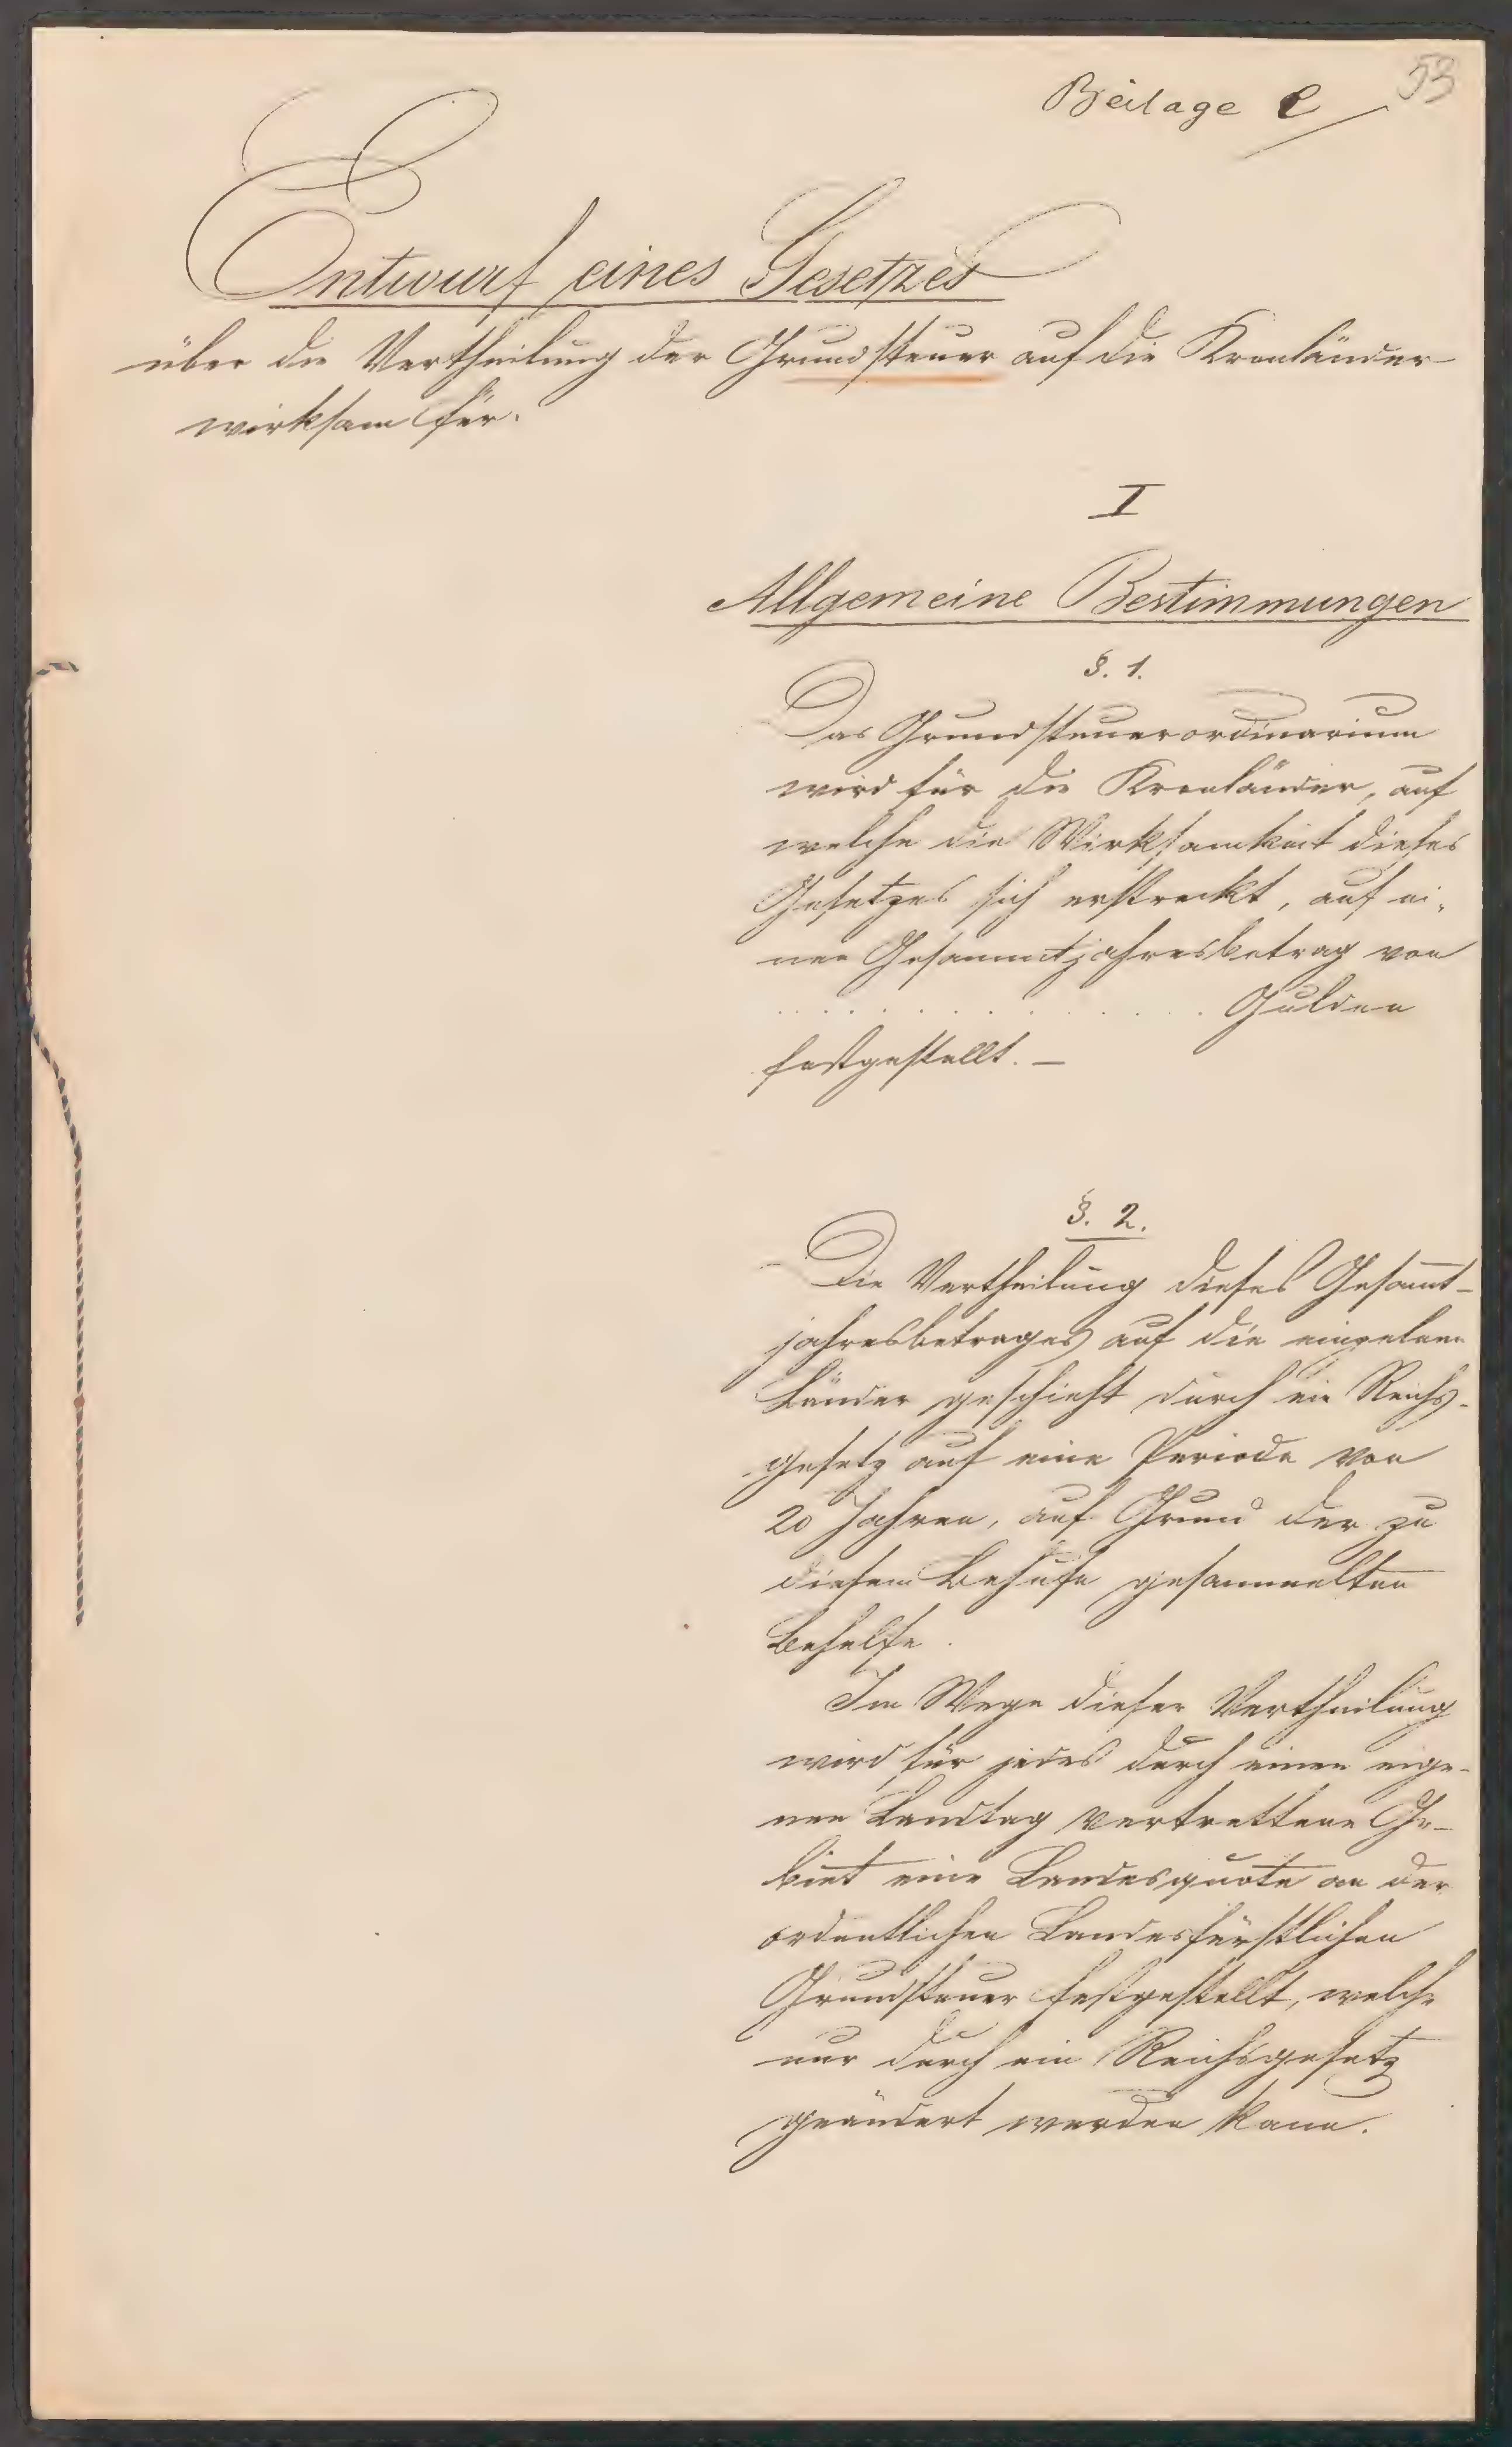 Beilage e
53
Entwurf eines Gesetzes
über die Vertheilung der Grundsteuer auf die Kronländer
wirksam für.
I
Allgemeine Bestimmungen
§. 1.
Das Grundsteuerordinarium
wird für die Kronländer, auf
welche die Wirksamkeit dieses
Gesetzes sich erstreckt, auf ei-
nen Gesammtjahresbetrag von
. . . . . . . . . . . . . Gulden
festgestellt. —
§. 2.
Die Vertheilung dieses Gesam̄t-
jahresbetrages auf die einzelnen
Länder geschieht durch ein Reichs-
gesetz auf eine Periode von
20 Jahren, auf Grund der zu
diesem Behufe gesammelten
Behelfe.
Im Wege dieser Vertheilung
wird für jedes durch einen eige-
nen Landtag vertrettene Ge-
biet eine Landesquote an der
ordentlichen Landesfürstlichen
Grundsteuer festgestellt, welche
nur durch ein Reichsgesetz
geändert werden kann.